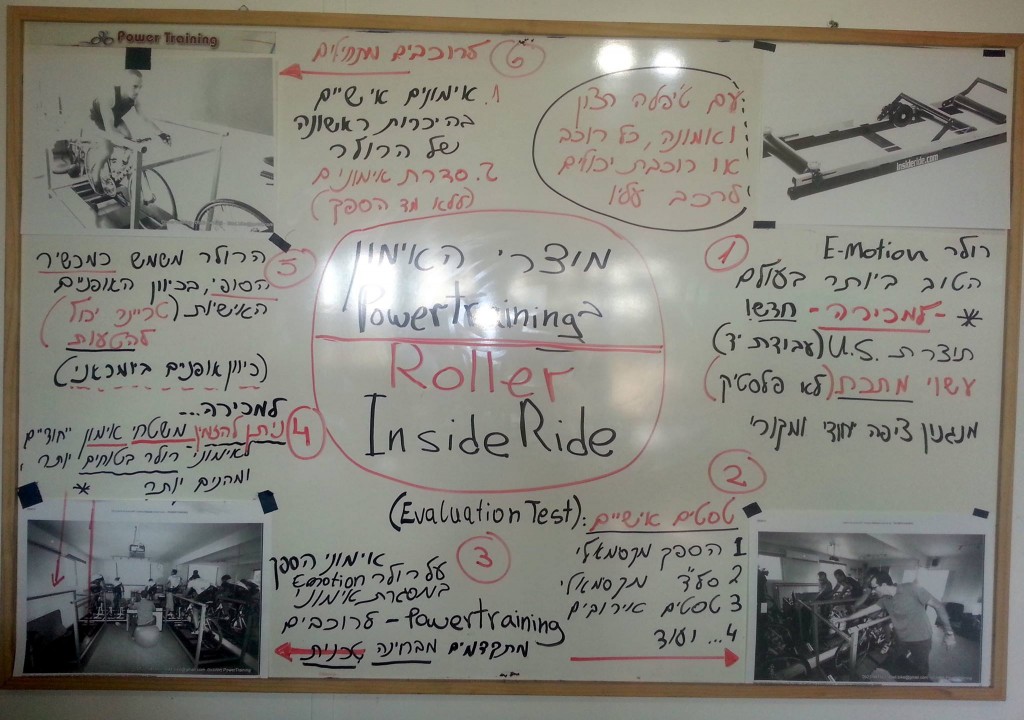 Power Training
מוצרי האימון
בPowertraining
Roller
InsideRide
1
רולר E-motion
הטוב ביותר בעולם
* -למכירה- חדש!
תוצרת .U.S (עבודת יד)
עשוי מתכת (לא פלסטיק)
מנגנון ציפה יחודי ומקורי
insideride.com
2
טסטים אישיים :(Evaluation Test)
1 הספק מקסמאלי
2 סע"ד מקסמאלי
3 טסטים אירובים
4... ועוד
3
אימוני הספק
על רולר E-motion
במסגרת אימוני
Powertraining - לרוכבים
מתקדמים מבחינה טכנית
4
למכירה...
ניתן להזמין משטחי אימון ייחודיים
לאימוני רולר בטוחים יותר,
ומהנים יותר *
5
הרולר משמש כמכשיר
הסופי, בכיוון האופניים
האישיות (טריינר יכול
להטעות)
(כיוון אופנים ביומכאני)
6 לרוכבים מתחילים
1. אימונים אישיים
בהיכרות ראשונה
של הרולר
2. סדרת אימונים
(ללא מד הספק)
עם טיפלה רצון
ואמונה, כל רוכב
או רוכבת יכולים
לרכב עליו